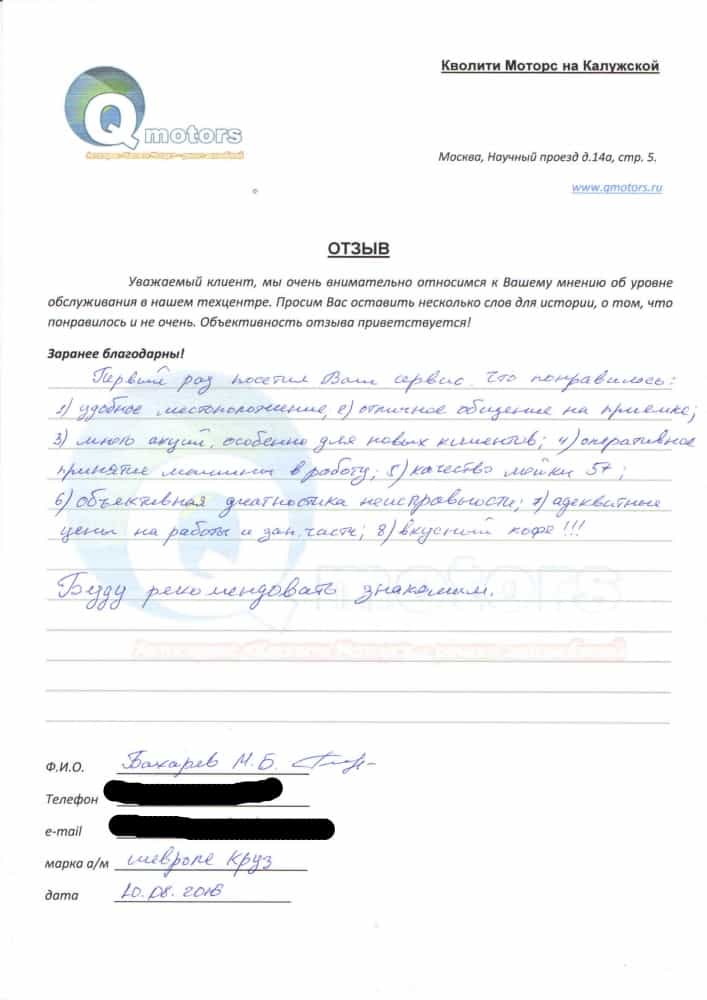 Кволити Моторс на Калужской
Q motors
Москва, Научный проезд д.14а, стр. 5.
www.qmotors.ru
ОТЗЫВ
Уважаемый клиент, мы очень внимательно относимся к Вашему мнению об уровне
обслуживания в нашем техцентре. Просим Вас оставить несколько слов для истории, о том, что
понравилось и не очень. Объективность отзыва приветствуется!
Заранее благодарны!
Первый раз посетил Ваш сервис. Что понравилось:
1) удобное местоположение, 2) отличное общение на приемке;
3) много акций, особенно для новых клиентов; 4) оперативное
принятие машины в работу; 5) качество мойки 5+;
6) объективная диагностика неисправности; 7) адекватные
цены на работы и зап. части; 8) вкусный кофе!!!
Буду рекомендовать знакомым.
motors
Ф.И.О. Бахарев М.Б.
Телефон
e-mail
марка а/м шевроле круз
дата 20.08.2016